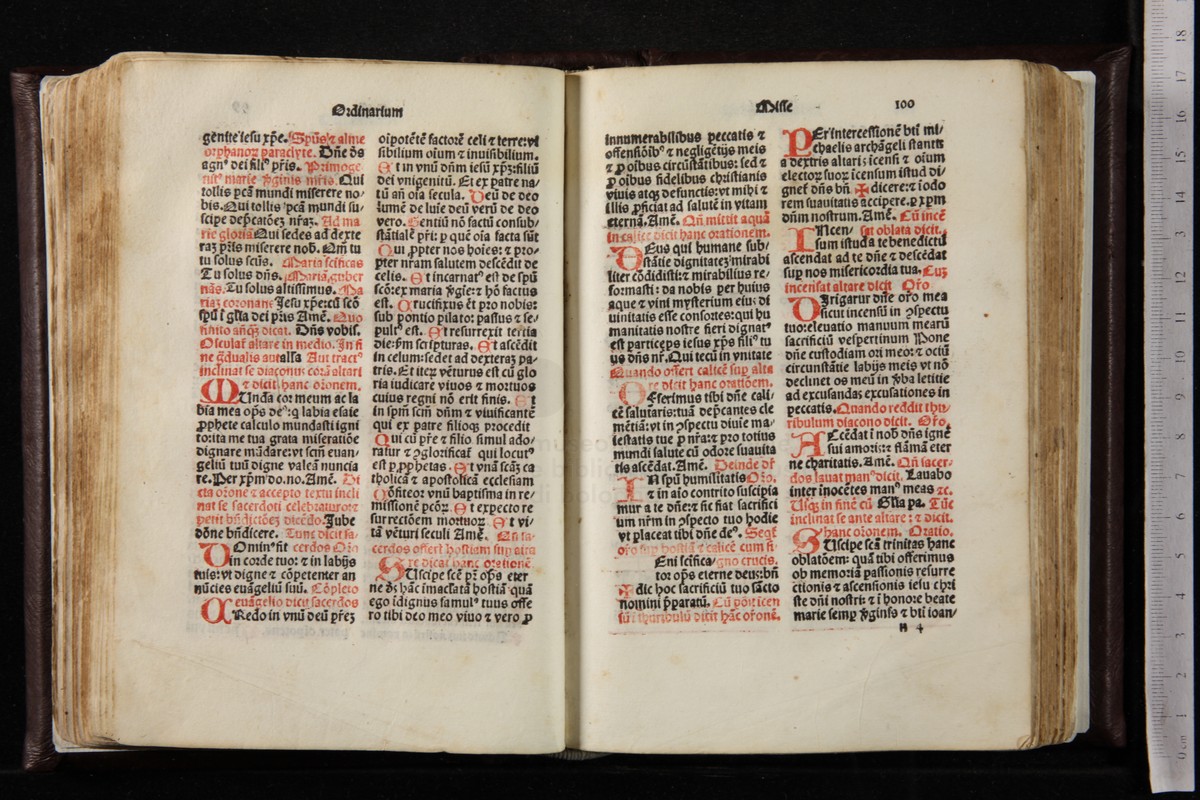 Ordinarium
genite iesu xp̄e. Spūs ⁊ alme
orphanoꝝ paraclyte. Dn̄e ds̄
agnꝰ dei filiꝰ pr̄is. Primoge
nitꝰ marie ꝟginis mr̄is. Qui
tollis pcā mundi miserere no-
bis. Qui tollis pcā mundi su-
scipe dep̄catōeꝫ nr̄aꝫ. Ad ma
rie gloriā Qui sedes ad dexte
raꝫ pr̄is miserere nob. Qm̄ tu
tu solus scūs. Maria scificas
Tu solus dn̄s. Mariā guber
nās. Tu solus altissimus. Ma
riaꝫ coronans Jesu xp̄e: cū scō
spū ī gl̄ia dei pr̄is Amē. Quo
finito dicat. Dn̄s vobis.
Osculaꝉ altare in medio. In fi
ne q̄dualis aut alſa Aut tractꝰ
inclinat se diaconꝰ corā altari
⁊ dicit hanc oronem.
MUnda cor meum ac la
bia mea op̄s deꝰ: q labia esaie
ꝓphete calculo mundasti igni
to: ita me tua grata miseratiōe
dignare mūdare: vt scm̄ euan-
geliū tuū digne valeā nuncia
re. Per xp̄m do. no. Amē. Di
cta orōne ⁊ accepto textu incli
nat se sacerdoti celebraturo: ⁊
petit bn̄dictōeꝫ dicēdo. Jube
dōne bn̄dicere. Tunc dicit sa-
DOminꝰ sit cerdos Orō
in corde tuo: ⁊ in labijs
tuis: vt digne ⁊ cōpetenter an
nūcies euāgeliū suū. Cōpleto
euāgelio dicit sacerdos
CRedo in vnū deū pr̄eꝫ
oīpotētē factorē celi ⁊ terre: vi
sibilium oīum ⁊ inuisibilium.
Et in vnū dn̄m iesū xp̄ꝫ: filiū
dei vnigenitū. Et ex patre na-
tū an̄ oīa secula. Deū de deo
lumē de luīe deū verū de deo
vero. Genitū nō factū consub-
stātialē pr̄i: p quē oīa facta sūt
Qui ꝓpter nos hoīes: ⁊ ꝓ-
pter nr̄am salutem descēdit de
celis. Et incarnatꝰ est de spū
scō: ex maria ꝟgīe: ⁊ hō factus
est. Crucifixus ēt pro nobis:
sub pontio pilato: passus ⁊ se-
pultꝰ est. Et resurrexit tertia
die: p̄m scripturas. Et ascēdit
in celum: sedet ad dexteraꝫ pa-
tris. Et iteꝝ vēturus est cū glo
ria iudicare viuos ⁊ mortuos
cuius regni nō erit finis. Et
in spm̄ scm̄ dn̄m ⁊ viuificantē
qui ex patre filioqꝫ procedit
Qui cū pr̄e ⁊ filio simul ado-
ratur ⁊ ꝯglorificat̄ qui locutꝰ
est ꝑ ꝓphetas. Et vnā scāꝫ ca
tholicā ⁊ apostolicā ecclesiam
Cōfiteor vnū baptisma in re-
missionē pctōꝝ. Et expecto re
surrectōem mortuoꝝ Et vi-
tā vēturi seculi Amē. Qn̄ sa-
cerdos offert hostiam sup aīra
re dicat hanc orationē
SUscipe scē pr̄ op̄s eter
ne ds̄ hāc īmaclatā hostiā quā
ego īdignus famulꝰ tuus offe
ro tibi deo meo viuo ⁊ vero ꝓ
Misse 100
innumerabilibus peccatis ⁊
offensiōibꝰ ⁊ negligētijs meis
⁊ ꝓ oībus circūstātibus: sed ⁊
ꝓ oībus fidelibus christianis
viuis atqꝫ defunctis: vt mihi ⁊
illis ꝓficiat ad salutē in vitam
eternā. Amē. Qn̄ mittit aquā
in calice dicit hanc orationem.
DEus qui humane sub-
stātie dignitateꝫ mirabi
liter cōdidisti: ⁊ mirabilius re-
formasti: da nobis per huius
aque ⁊ vini mysterium eiꝰ di
uinitatis esse consortes: qui hu
manitatis nostre fieri dignatꝰ
est particeps iesus xp̄s filiꝰ tu
us dn̄s nr̄. Qui tecū in vnitate
Quando offert calicē sup alta
re dicit hanc oratiōem.
OFferimus tibi dn̄e cali-
cē salutaris: tuā dep̄cantes cle
mētiā: vt in ꝯspectu diuie ma-
iestatis tue ꝓ nr̄a: ⁊ pro totius
mundi salute cū odore suauita
tis ascēdat. Amē. Deinde dr̄
IN spū humilitatis Orō.
⁊ in aīo contrito suscipia
mur a te dn̄e: ⁊ sic fiat sacrifici
um nr̄m in ꝯspecto tuo hodie
vt placeat tibi dn̄e deꝰ. Seqr̄
orō sup hostiā ⁊ calicē cum si-
Eni scifica gno crucis.
tor op̄s eterne deus: bn̄
✠ dic hoc sacrificiū tuo sācto
nomini p̄paratū. Cū pōit icen
sū ī thuribulū dicit hāc orōnē.
PEr intercessionē bt̄i mi-
chaelis archāgeli stantis
a dextris altaris īcensi ⁊ oīum
electoꝝ suoꝝ īcensum istud di-
gneꝉ dn̄s bn̄ ✠ dicere: ⁊ ī odo
rem suauitatis accipere. ꝑ xp̄m
dn̄m nostrum. Amē. Cū incē
INcen- sat oblata dicit.
sum istud a te benedictū
ascendat ad te dn̄e ⁊ descēdat
sup nos misericordia tua. Cuꝫ
incensat altare dicit Orō
DIrigatur dn̄e orō mea
sicut incensū in ꝯspectu
tuo: eleuatio manuum mearū
sacrificiū vespertinum Pone
dn̄e custodiam ori meo: ⁊ ociū
circunstātie labijs meis vt nō
declinet os meū in ꝟba letitie
ad excusandas excusationes in
peccatis. Quando reddit thu-
ribulum diacono dicit. Orō.
ACcēdat ī nob dn̄s ignē
sui amoris: ⁊ flāmā eter
ne charitatis. Amē. Qn̄ sacer-
dos lauat manꝰ dicit. Lauabo
inter inocētes manꝰ meas ⁊c.
Usqꝫ in finē cū Gl̄ia pa. Tūc
inclinat se ante altare: ⁊ dicit.
hanc oronem. Oratio.
SUscipe scā trinitas hanc
oblatōem: quā tibi offerimus
ob memoriā passionis resurre
ctionis ⁊ ascensionis iesu chri
ste dn̄i nostri: ⁊ ī honore beate
marie semꝑ ꝟginis ⁊ bt̄i ioan-
n 4